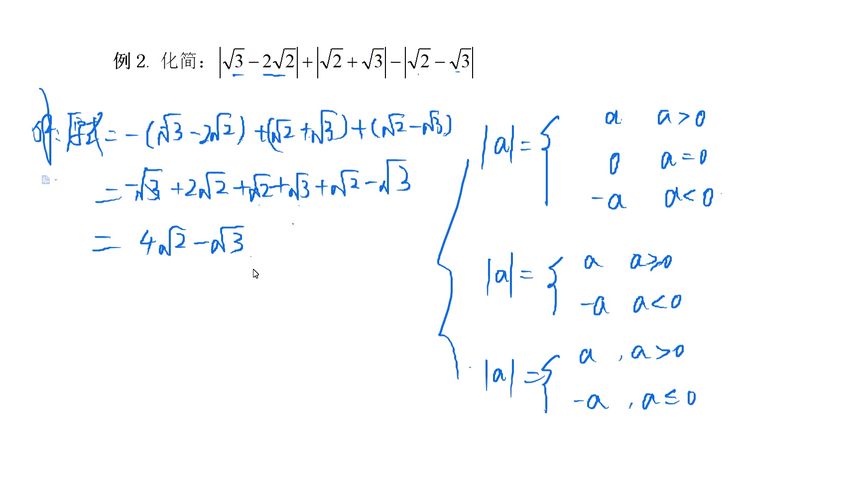 例 2. 化简：|√3－2√2|＋|√2＋√3|－|√2－√3|
解：原式＝－(√3－2√2)＋(√2＋√3)＋(√2－√3)
＝－√3＋2√2＋√2＋√3＋√2－√3
＝ 4√2－√3
|a|＝{ a a＞0
0 a＝0
－a a＜0
|a|＝{ a a≥0
－a a＜0
|a|＝{ a ，a＞0
－a ，a≤0